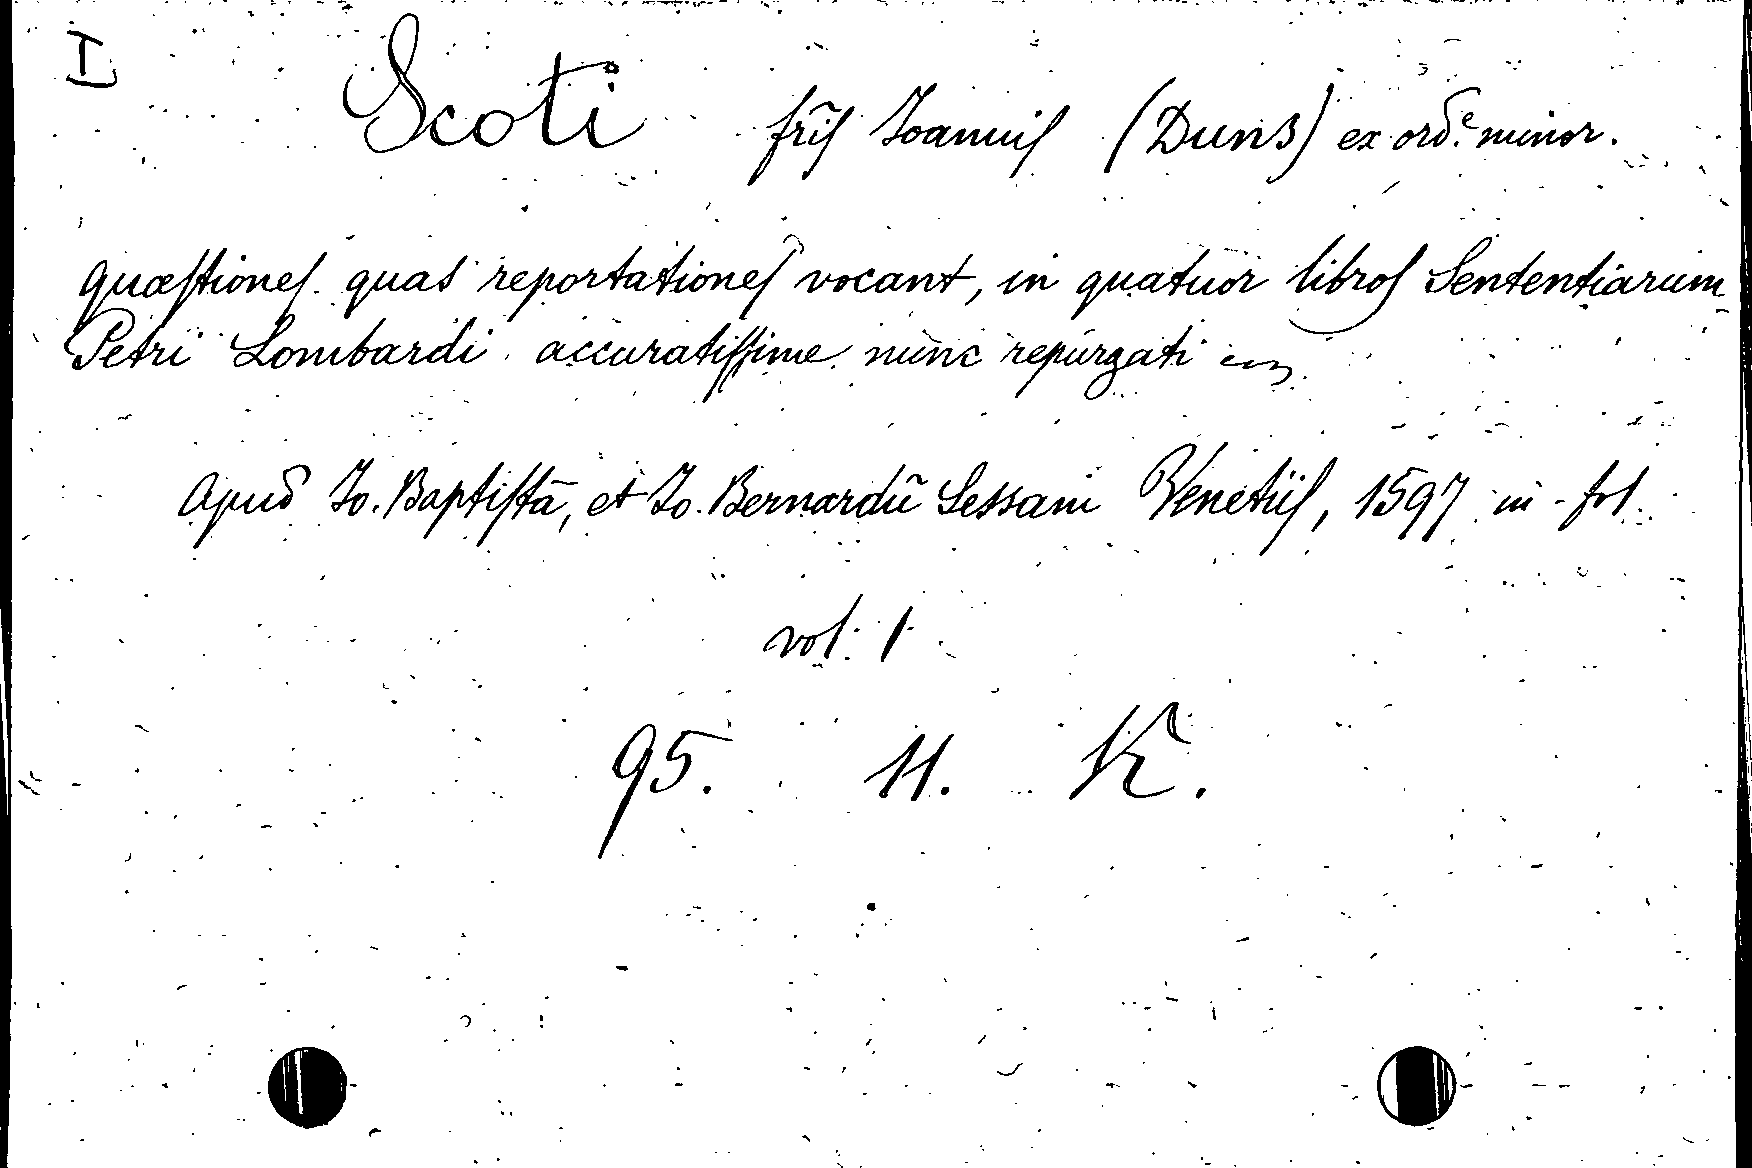 I
Scoti frīs Joannis (Duns) ex ordᵉ. minor.
quæstiones quas reportationes vocant, in quatuor libros Sententiarum
Petri Lombardi accuratissime nunc repurgati
Apud Jo. Baptistā, et Jo. Bernardū Sessam Venetiis, 1597 in-fol.
vol. 1
95. 11. K.